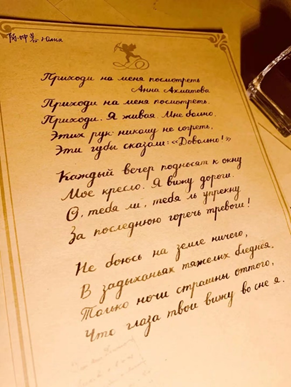 Юлия
Приходи на меня посмотреть
Анна Ахматова
Приходи на меня посмотреть.
Приходи. Я живая. Мне больно.
Этих рук никому не согреть,
Эти губы сказали: «Довольно!»
Каждый вечер подносят к окну
Мое кресло. Я вижу дороги.
О, тебя ли, тебя ль упрекну
За последнюю горечь тревоги!
Не боюсь на земле ничего,
В задыханьях тяжелых бледнея.
Только ночи страшны оттого,
Что глаза твои вижу во сне я.